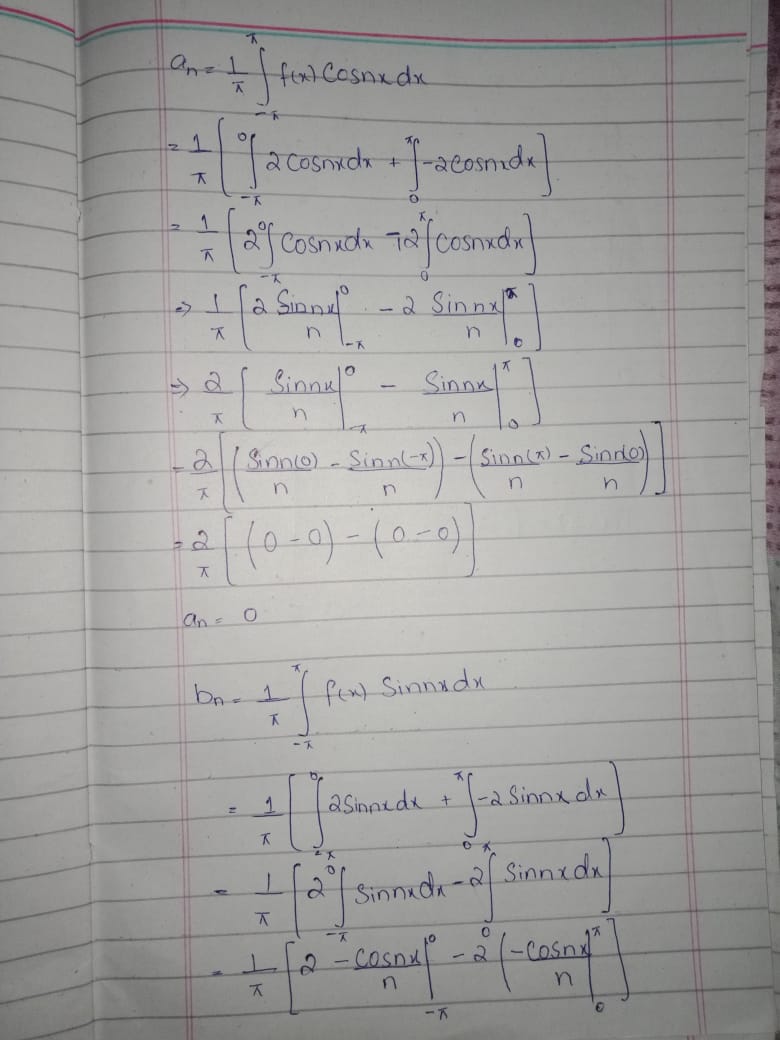 aₙ = 1/π ∫_{-π}^{π} f(x) Cosnx dx
= 1/π [ ∫_{-π}^{0} 2 cosnx dx + ∫_{0}^{π} -2 cosnx dx ]
= 1/π [ 2 ∫_{-π}^{0} Cosnx dx - 2 ∫_{0}^{π} cosnx dx ]
⇒ 1/π [ 2 Sinnx/n |_{-π}^{0} - 2 Sinnx/n |_{0}^{π} ]
⇒ 2/π [ Sinnx/n |_{-π}^{0} - Sinnx/n |_{0}^{π} ]
= 2/π [ ( Sinn(0)/n - Sinn(-π)/n ) - ( Sinn(π)/n - Sinn(0)/n ) ]
= 2/π [ (0-0) - (0-0) ]
aₙ = 0
bₙ = 1/π ∫_{-π}^{π} f(x) Sinnx dx
= 1/π [ ∫_{-π}^{0} 2 Sinnx dx + ∫_{0}^{π} -2 Sinnx dx ]
= 1/π [ 2 ∫_{-π}^{0} Sinnx dx - 2 ∫_{0}^{π} Sinnx dx ]
= 1/π [ 2 -Cosnx/n |_{-π}^{0} - 2 ( -Cosnx/n |_{0}^{π} ]